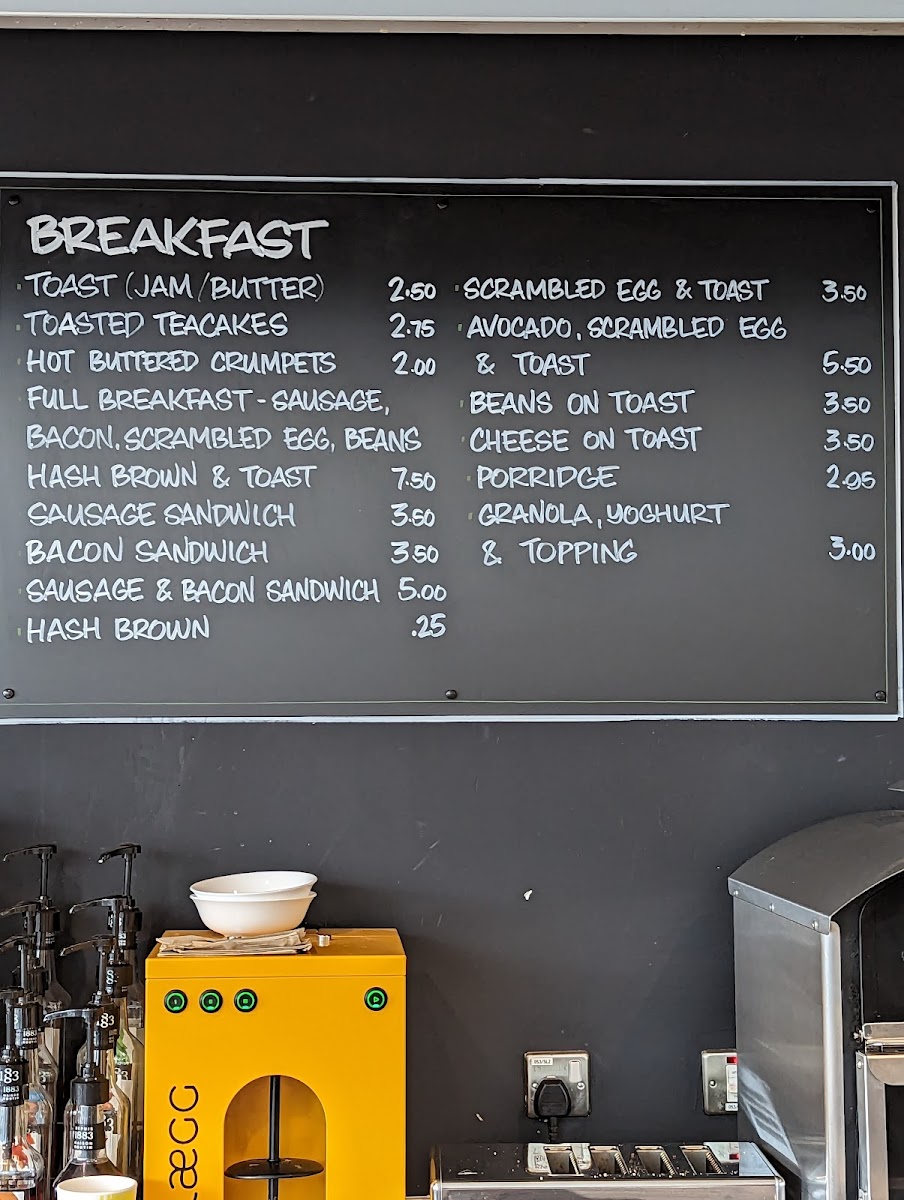 BREAKFAST
TOAST (JAM/BUTTER) 2.50
TOASTED TEACAKES 2.75
HOT BUTTERED CRUMPETS 2.00
FULL BREAKFAST - SAUSAGE,
BACON, SCRAMBLED EGG, BEANS
HASH BROWN & TOAST 7.50
SAUSAGE SANDWICH 3.50
BACON SANDWICH 3.50
SAUSAGE & BACON SANDWICH 5.00
HASH BROWN .25
SCRAMBLED EGG & TOAST 3.50
AVOCADO, SCRAMBLED EGG
& TOAST 5.50
BEANS ON TOAST 3.50
CHEESE ON TOAST 3.50
PORRIDGE 2.95
GRANOLA, YOGHURT
& TOPPING 3.00
1883
1883
DEPUIS
1883
MAISON
ROUTIN